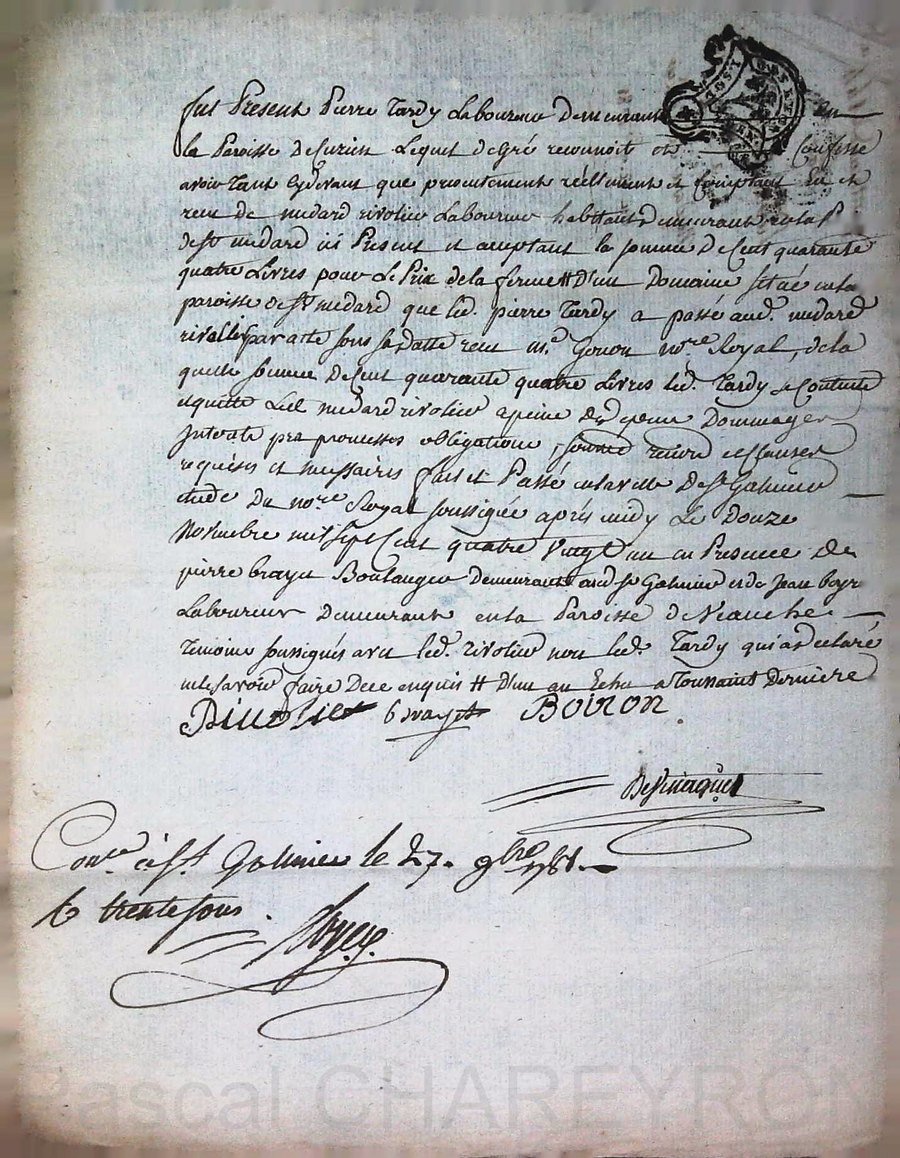 fut Present Pierre Tardy Laboureur Demeurant en
la Paroisse de Lequel de gré reconnoit et Confesse
avoir Tant Cydevant que presentement réellement et Comptant Eu et
receu de medard rivolier Laboureur habitant Demeurant en la P
de St medard ici Present et acceptant la somme De Cent quarante
quatre Livres pour Le Prix de la ferme # D'un Domaine situé en la
paroisse de St medard que led. pierre Tardy a passé aud. medard
rivollier par acte sous sa datte receu me. Gonon nore. Royal, de la
quelle somme De Cent quarante quatre Livres led. Tardy se Contente
et quitte Led. medard rivolier a peine de Dommages
Interets par promesses obligations,
requises et necessaires fait et Passé en la ville De St Galmier
étude Du nore. Royal soussigné après midy Le Douze
Novembre mil sept Cent quatre Vingt un en Presence De
pierre brayet Boulanger Demeurant aud. St Galmier et de Jean
Laboureur Demeurant en la Paroisse de Veauche
Temoins soussignés avec led. rivolier non led. Tardy qui a declaré
ne le savoir faire De ce enquis # D'un an Echu a Toussaint Derniere
Rivolier brayet BOIRON
Conlé. à St. Galmier le 27. 9bre 1781.
R trente sous.
Pascal CHAREYRON